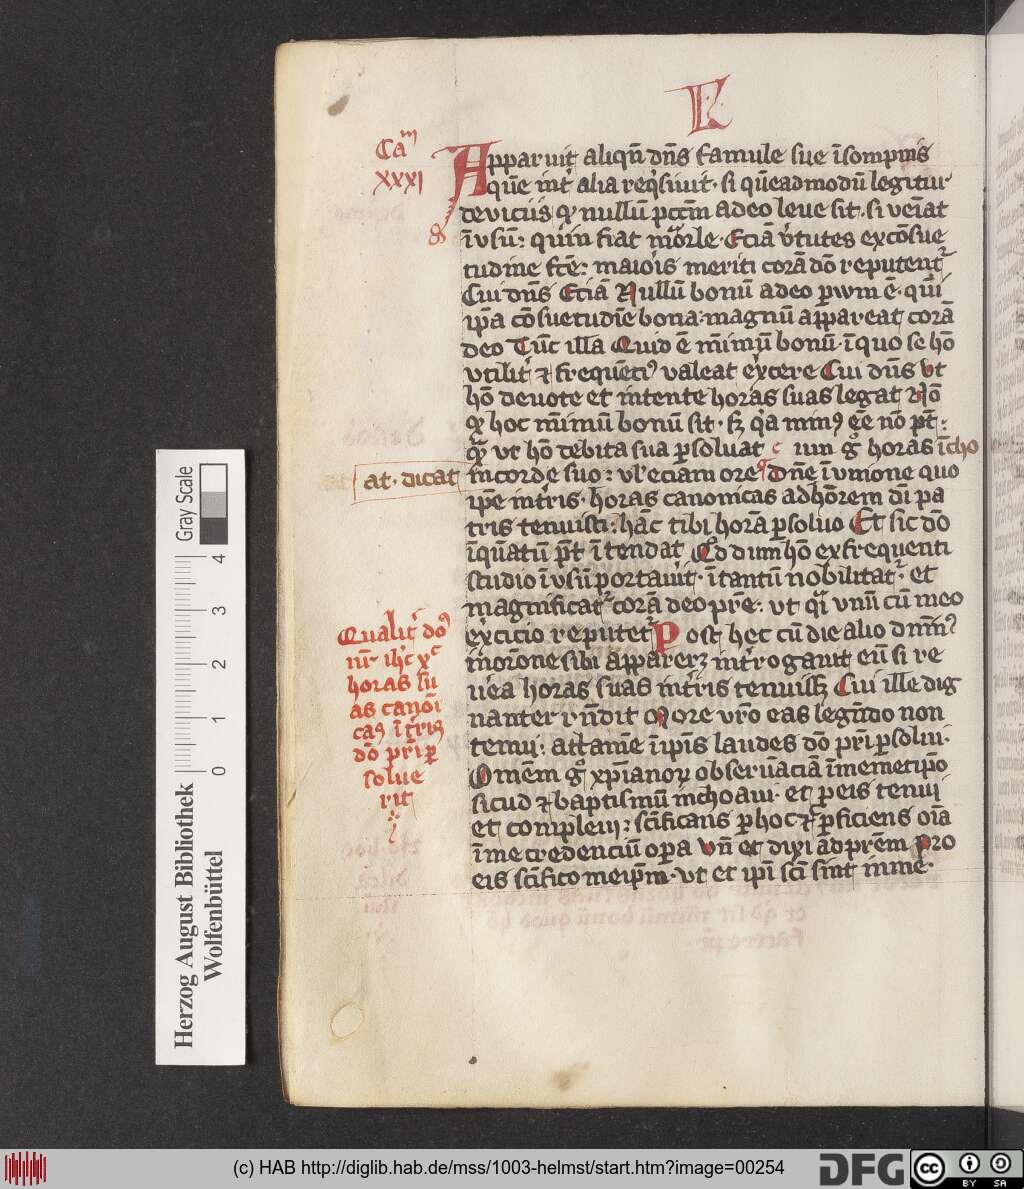 L
Cam
XXXI
Apparuit aliqn̄ dn̄s famule sue ī sompnis
que int̉ alia reqͥsiuit· si qūeadmodū legitur
de viciis ꝙ nullū pctm̄ adeo leue sit· si veīat
ī vsū: quin fiat moͬrle· Eciā v̉tutes excōsue
tudine fcē: maioͥs meriti corā dō reputent᷑
Cui dn̄s Eciā Nullū bonū adeo ꝑuum ē· qui
ip̄a cōsuetudīe bona: magnū appareat corā
deo Tūc illa Quid ē mīmū bonū· ī quo se hō
vtilit̉ ⁊ frequēciꝰ valeat ex̉cere Cui dn̄s Vt
hō deuote et intente horas suas legat Nō
ꝙ hoc mīmū bonū sit· sꝫ qͥa minꝰ eē nō pt̄·
qͣ vt hō debita sua ꝑsoluat
horas īcho
at· dicat
in corde suo: vl̉ eciam ore dn̄e ī vnione quo
ip̄e in tris· horas canonicas ad hōrem dī pa
tris tenuisti: hāc tibi horā ꝑsoluo Et sic dō
īquātū pt̄ ītendat Qd̄ dum hō ex frequenti
studio ī vsū portauit· ī tantū nobilitat᷑· et
magnificat᷑ corā deo pr̄e: vt qͥ vnū cū meo
ex̉cicio reputet᷑ Post hec cū die alio dn̄m
in or̄one sibi apparerꝫ int̉rogauit eū si re
uēa horas suas in tr̄is tenuissꝫ Cui ille dig
nanter rn̄dit More vr̄o eas legēdo non
tenui: attamē ī ip̄is laudes dō pr̄i ꝑsolui·
Omēm gͦ xp̄ianoꝝ obseruāciā ī memetip̄o
sicud ⁊ baptismū inchoaui· et ꝑ eis tenui
et compleui: scīficans ꝑ hoc ⁊ ꝑficiens oīa
ī me credenciū oꝑa Vn̄ et dixi ad prēm Pro
eis scīfico meip̄m· vt et ip̄i scī sint in me·
Qualit̉ doꝰ
nr̄ ih̄c xͨ
horas su
as canoī
cas ī tr̄is
dō pr̄i ꝑ
solue
rit
Herzog August Bibliothek
Wolfenbüttel
Gray Scale
0 1 2 3 4
(c) HAB http://diglib.hab.de/mss/1003-helmst/start.htm?image=00254
DFG
cc BY SA